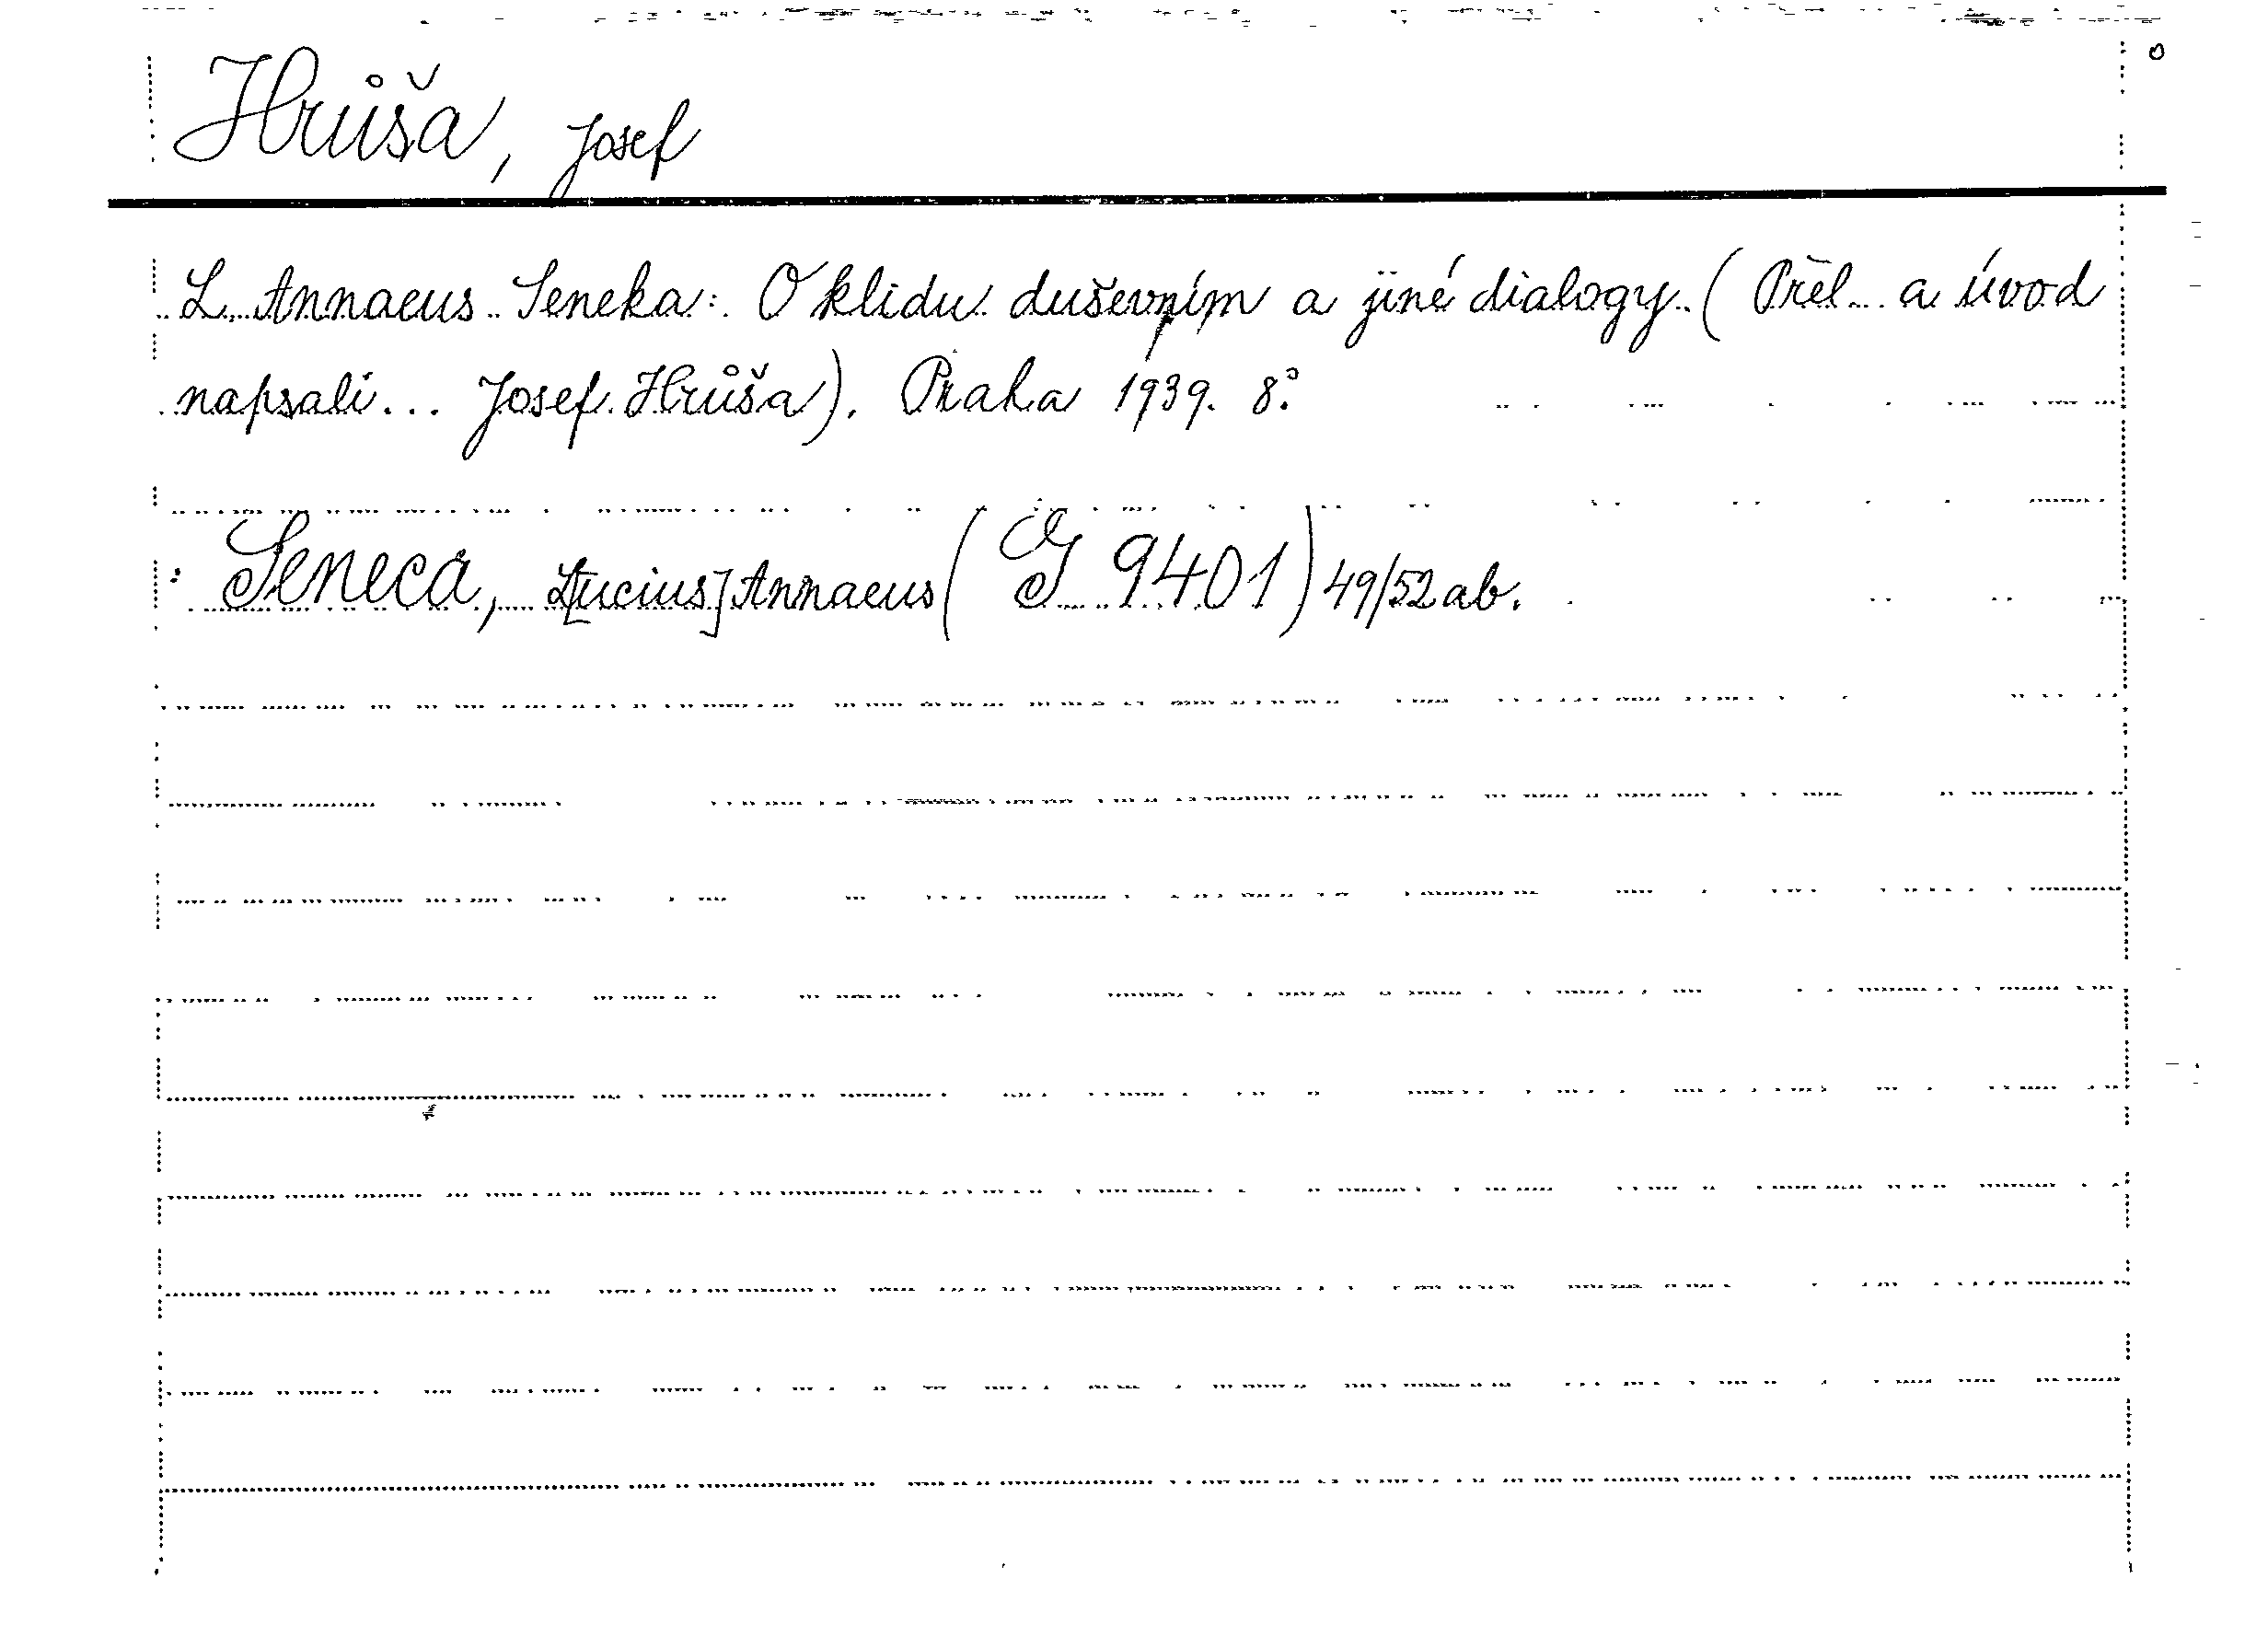 Hrůša, Josef
L. Annaeus Seneka: O klidu duševním a jiné dialogy. (Přel. a úvod
napsali... Josef Hrůša). Praha 1939. 8°
: Seneca, L[ucius] Annaeus (G 9401) 49/52ab.